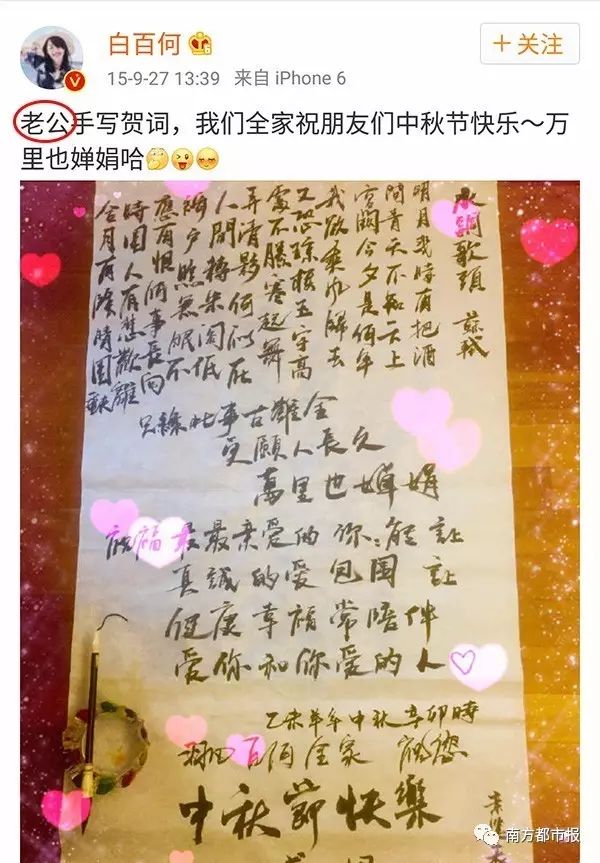 白百何
+关注
15-9-27 13:39 来自 iPhone 6
老公手写贺词，我们全家祝朋友们中秋节快乐～万
里也婵娟哈
水調歌頭 蘇軾
明月幾時有把酒
問青天不知天上
宮闕今夕是何年
我欲乘風歸去
又恐瓊樓玉宇高
處不勝寒起舞
弄清影何似在
人間轉朱閣低
綺戶照無眠不
應有恨何事長向
時圓人有悲歡離
合月有陰晴圓缺
只緣此事古難全
更願人長久
萬里也嬋娟
祝福最最亲爱的你:能 讓
真誠的爱包围 讓
健康幸福常陪伴
爱你和你爱的人
乙未羊年中秋辛卯時
羽凡百何全家 祝您
中秋節快樂
南方都市报